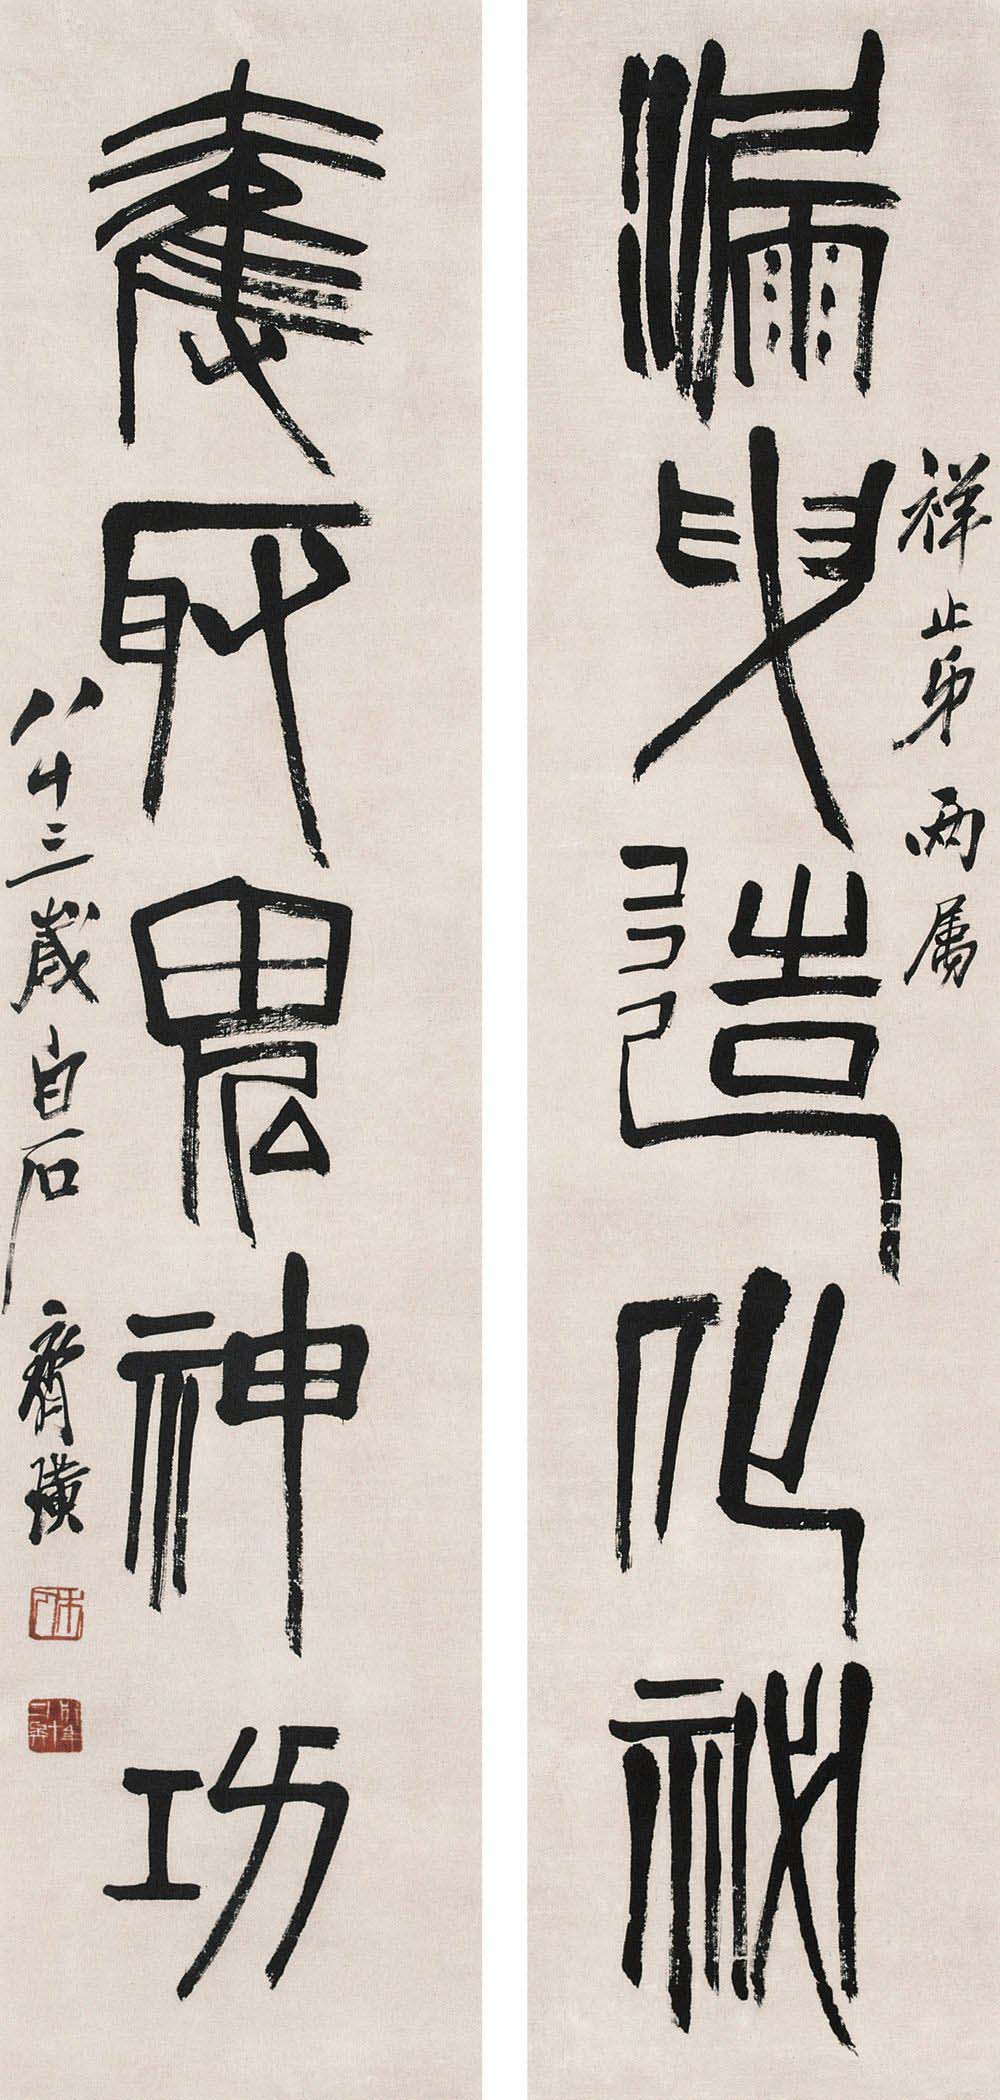 漏曳造化秘
祥止弟两屬
奪取鬼神功
八十三歲白石齊璜